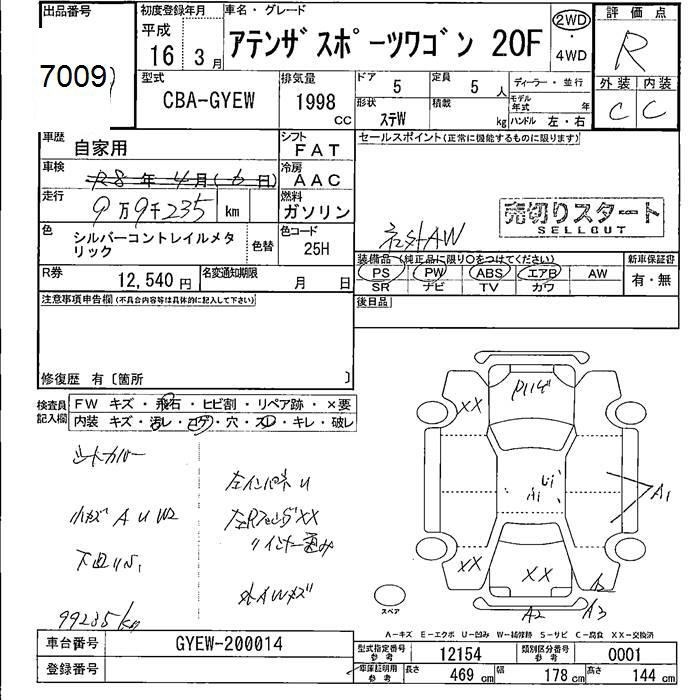 出品番号
7009
初度登録年月
平成
16 3月
車名・グレード
アテンザスポーツワゴン 20F
2WD
・
4WD
評価点
R
型式
CBA-GYEW
排気量
1998
cc
ドア
5
定員
5人
ディーラー・並行
形状
ステW
積載
kg
モデル年式 年
ハンドル 左・右
外装 内装
C C
車歴
自家用
シフト
FAT
セールスポイント(正常に機能するものに限ります)
車検
R8年4月(6日)
冷房
AAC
走行
9万9千235 km
燃料
ガソリン
売切りスタート
SELLOUT
社外AW
色
シルバーコントレイルメタリック
色替
色コード
25H
装備品(純正品に限り○をつけてください)
PS PW ABS エアB AW
SR ナビ TV カワ
新車保証書
有・無
R券
12,540円
名変通知期限
月 日
後日品
注意事項申告欄(不具合内容等は具体的に記入して下さい)
修復歴 有〔箇所 〕
検査員
記入欄
FW キズ・飛石・ヒビ割・リペア跡・×要
内装 キズ・汚レ・コゲ・穴・スレ・キレ・破レ
シートカバー
左インパネU
小キズAUW2
左Rフェンダ XX
〃インナー歪み
下回りS1
外AWキズ
99235km
XX
A1
XX
XX
A2
A2
A3
スペア
A-キズ E-エクボ U-凹み W-補修跡 S-サビ C-腐食 XX-交換済
車台番号
GYEW-200014
登録番号
型式指定番号
参考
12154
類別区分番号
参考
0001
車庫証明用
参考
長さ
469 cm
幅
178 cm
高さ
144 cm